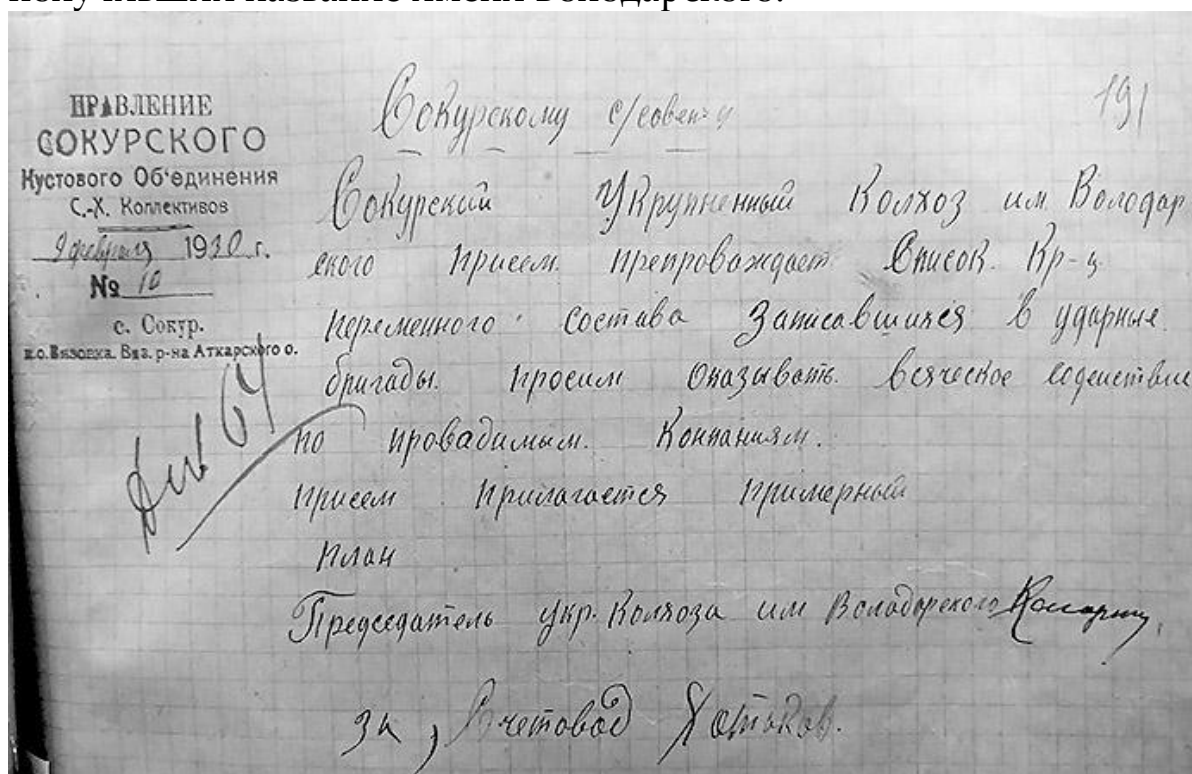 получивший название имени Володарского.
ПРАВЛЕНИЕ
СОКУРСКОГО
Кустового Об‘единения
С.-Х. Коллективов
9 февраля 1930 г.
№ 10
с. Сокур.
п.о. Вязовка. Вяз. р-на Аткарского о.
191
Сокурскому с/совету
Сокурский Укрупненный Колхоз им. Володар
ского присем. препровождает. Список. Кр-ц.
переменного состава Записавшихся в ударные
бригады. просим Оказывать. всяческое содействие
по провадимым. Конпаниям.
присем прилагается примерный
План
Председатель укр. Колхоза им Володарского
за, Счетовод